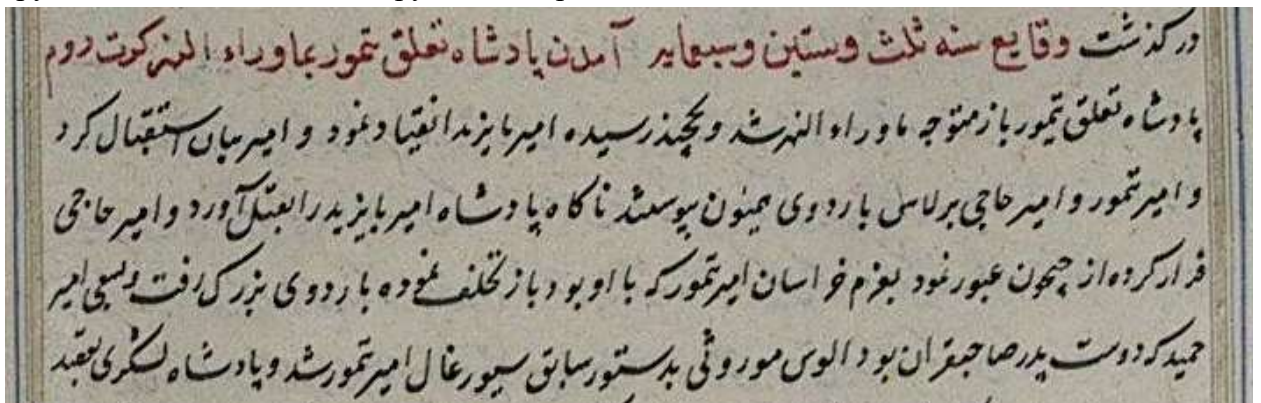 درکذشت وقایع سنه ثلث وستین وسبعمایه آمدن پادشاه تعلق تیمور بماوراء النهر کرت دوم
پادشاه تغلق تیمور باز متوجه ماوراء النهر شد و بخجند رسیده امیر بایزید انقیاد نمود و امیر بیان استقبال کرد
و امیر تیمور و امیر حاجی برلاس باردوی همیون پیوستند ناکاه پادشاه امیر بایزید را بقتل آورد و امیر حاجی
فرار کرده از جیحون عبور نمود بعزم خراسان امیر تیمور که با او بود باز تخلف نموده باردوی بزرک رفت وبسعی امیر
حمید که دوست پدر صاحبقران بود الوس موروثی بدستور سابق سیورغال امیر تیمور شد و پادشاه لشکری بقصد